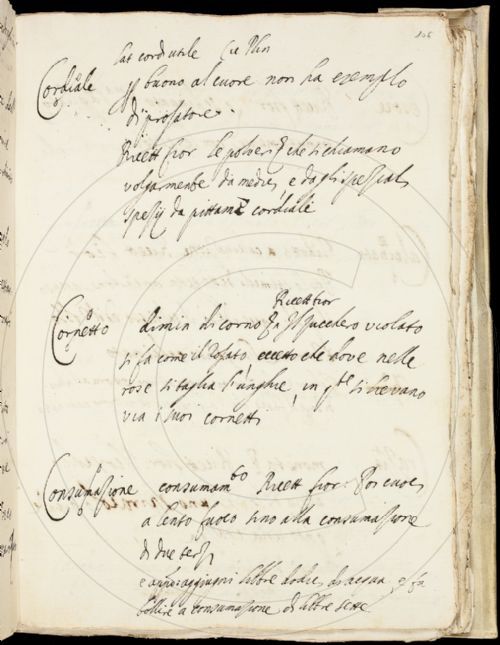 106
lat cord utile Cic Plin
Cordiale p buono al cuore non ha exemplo
di prosatore.
Ricett fior le polveri che si chiamano
volgarmente da medici, e dagli spetiali
spezij da pittima cordiale
Ricett fior
Cornetto dimin di corno Il zucchero violato
si fa come il rosato eccetto che dove nelle
rose si taglia l'unghie, in q.te si levano
via i suoi cornetti
Consumazione consumam.to Ricett fior: Poi cuoci
a lento fuoco sino alla consumazione
di due terzi
e app.o: aggiugni libbre dodici di acqua e fa
bollire a consumazione di libbre sette